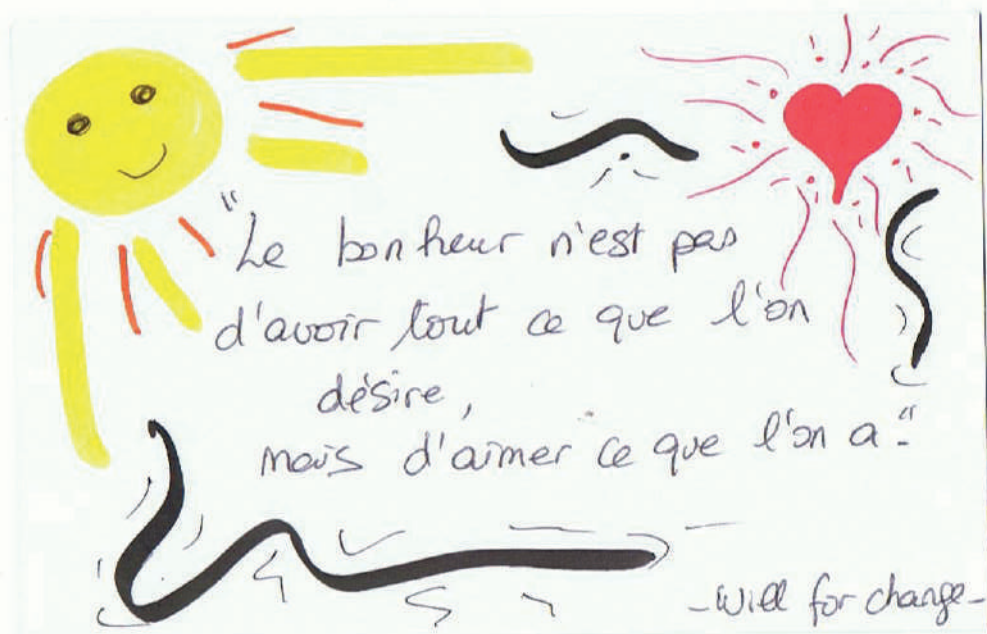 "Le bonheur n'est pas
d'avoir tout ce que l'on
désire,
mais d'aimer ce que l'on a."
-Will for change-